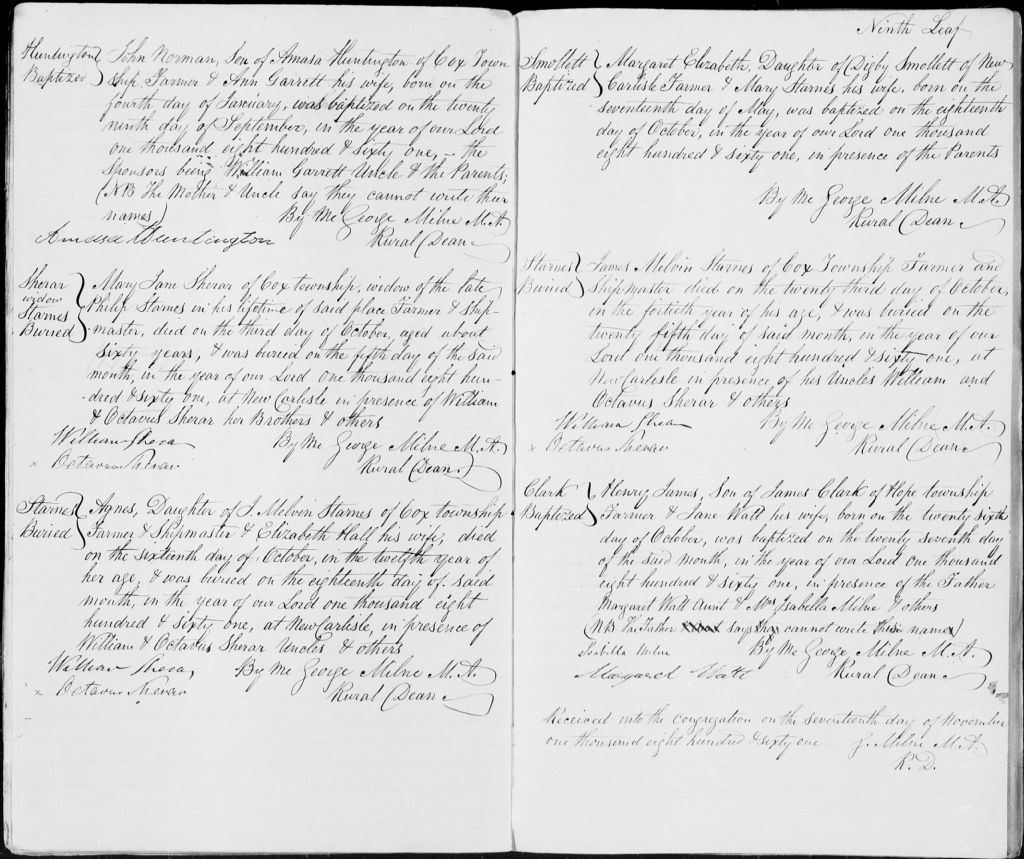 Huntington } John Norman, Son of Amasa Huntington of Cox Town
Baptized } ship, Farmer & Ann Garrett his wife, born on the
fourth day of January, was baptized on the twenty
ninth day of September, in the year of our Lord
one thousand eight hundred & sixty one, – the
Sponsors being William Garrett Uncle & the Parents;
(NB The Mother & Uncle say they cannot write their
names) By Me George Milne M.A.
Amasa Huntington Rural Dean
Sherar } Mary Jane Sherar of Cox township, widow of the late
widow Philip Starnes in his lifetime of said place Farmer & Ship-
Starnes master, died on the third day of October, aged about
Buried } sixty years, & was buried on the fifth day of the said
month, in the year of our Lord one thousand eight hun-
-dred & sixty one, at New Carlisle in presence of William
& Octavus Sherar her Brothers & others
William Shera By Me George Milne M.A.
x Octavus Sherar Rural Dean
Starnes } Agnes, Daughter of J. Melvin Starnes of Cox township
Buried } Farmer & Shipmaster & Elizabeth Hall his wife, died
on the sixteenth day of October, in the twelfth year of
her age, & was buried on the eighteenth day of said
month, in the year of our Lord one thousand eight
hundred & sixty one, at New Carlisle, in presence of
William & Octavus Sherar Uncles & others
William Shera, By Me George Milne M.A.
x Octavus Sherar Rural Dean
Ninth Leaf
Smollett } Margaret Elizabeth, Daughter of Digby Smollett of New
Baptized } Carlisle Farmer & Mary Starnes his wife, born on the
seventeenth day of May, was baptized on the eighteenth
day of October, in the year of our Lord one thousand
eight hundred & sixty one, in presence of the Parents
By Me George Milne M.A.
Rural Dean
Starnes } James Melvin Starnes of Cox Township Farmer and
Buried } Shipmaster died on the twenty third day of October,
in the fortieth year of his age, & was buried on the
twenty fifth day of said month, in the year of our
Lord one thousand eight hundred & sixty one, at
New Carlisle in presence of his Uncles William and
Octavus Sherar & others
William Shera By Me George Milne M.A.
x Octavus Sherar Rural Dean
Clark } Henry James, Son of James Clark of Hope township
Baptized } Farmer & Jane Watt his wife, born on the twenty sixth
day of October, was baptized on the twenty seventh day
of the said month, in the year of our Lord one thousand
eight hundred & sixty one, in presence of the Father
Margaret Watt Aunt & Mrs Isabella Milne & others
(NB The Father says they cannot write their names)
Isabella Milne By Me George Milne M.A.
Margaret Watt Rural Dean
Received into the congregation on the seventeenth day of November
one thousand eight hundred & sixty one G. Milne M.A.
R. D.